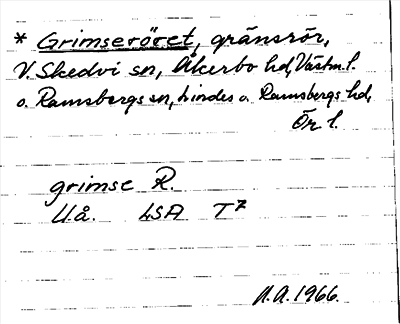 * Grimseröret, gränsrör,
V. Skedvi sn, Åkerbo hd, Västm. l.
o. Ramsbergs sn, Lindes o. Ramsbergs hd,
Ör l.
grimse R.
U.å. LSA T 7
A.A. 1966.